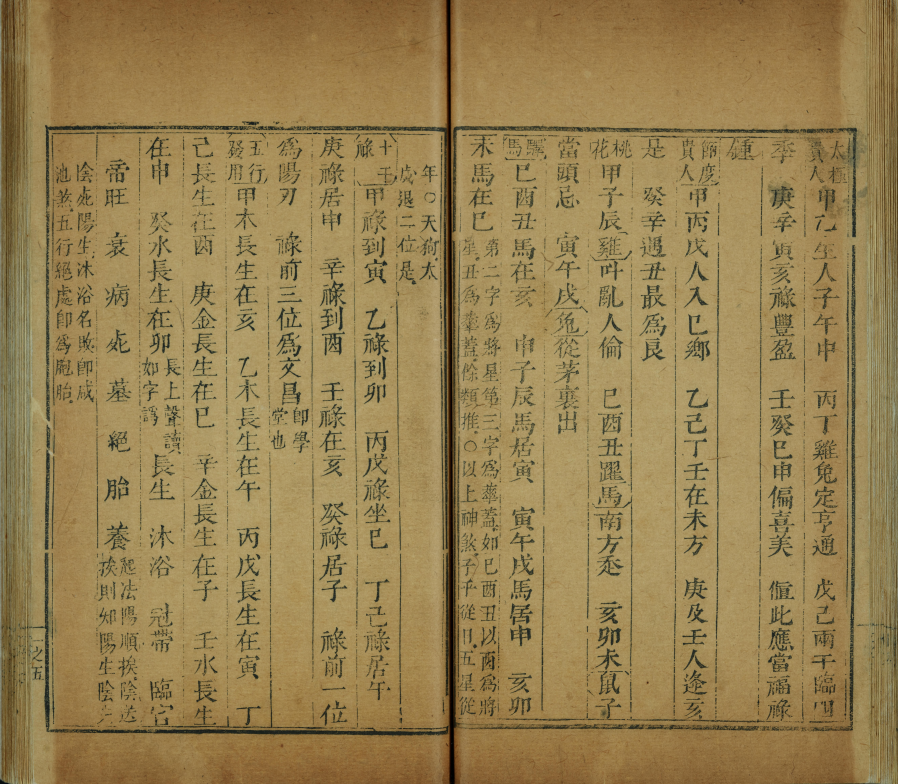 太極貴人 甲乙生人子午中 丙丁雞兔定亨通 戊己兩干臨四
季 庚辛寅亥祿豐盈 壬癸巳申偏喜美 値此應當福祿
鍾
節度貴人 甲丙戊人入巳鄉 乙己丁壬在未方 庚及壬人逢亥
是 癸辛遇丑最爲良
桃花 甲子辰雞叫亂人倫 巳酉丑躍馬南方走 亥卯未鼠子
當頭忌 寅午戌兔從茅裏出
驛馬 巳酉丑馬在亥 申子辰馬居寅 寅午戌馬居申 亥卯
未馬在巳 第二字爲將星第三字爲華葢如巳酉丑以酉爲將
星丑爲華葢餘類推○以上神煞子平從日五星從
年○天狗太
歲退二位是
十干祿 甲祿到寅 乙祿到卯 丙戊祿坐巳 丁己祿居午
庚祿居申 辛祿到酉 壬祿在亥 癸祿居子 祿前一位
爲陽刃 祿前三位爲文昌 即學堂也
五行發用 甲木長生在亥 乙木長生在午 丙戊長生在寅 丁
己長生在酉 庚金長生在巳 辛金長生在子 壬水長生
在申 癸水長生在卯 長上聲讀如字譌 長生 沐浴 冠帶 臨官
帝旺 衰 病 死 墓 絕 胎 養 起法陽順挨陰逆
挨則如陽生陰
陰死陽生沐浴名敗即咸
池煞五行絕處即爲胞胎
之五